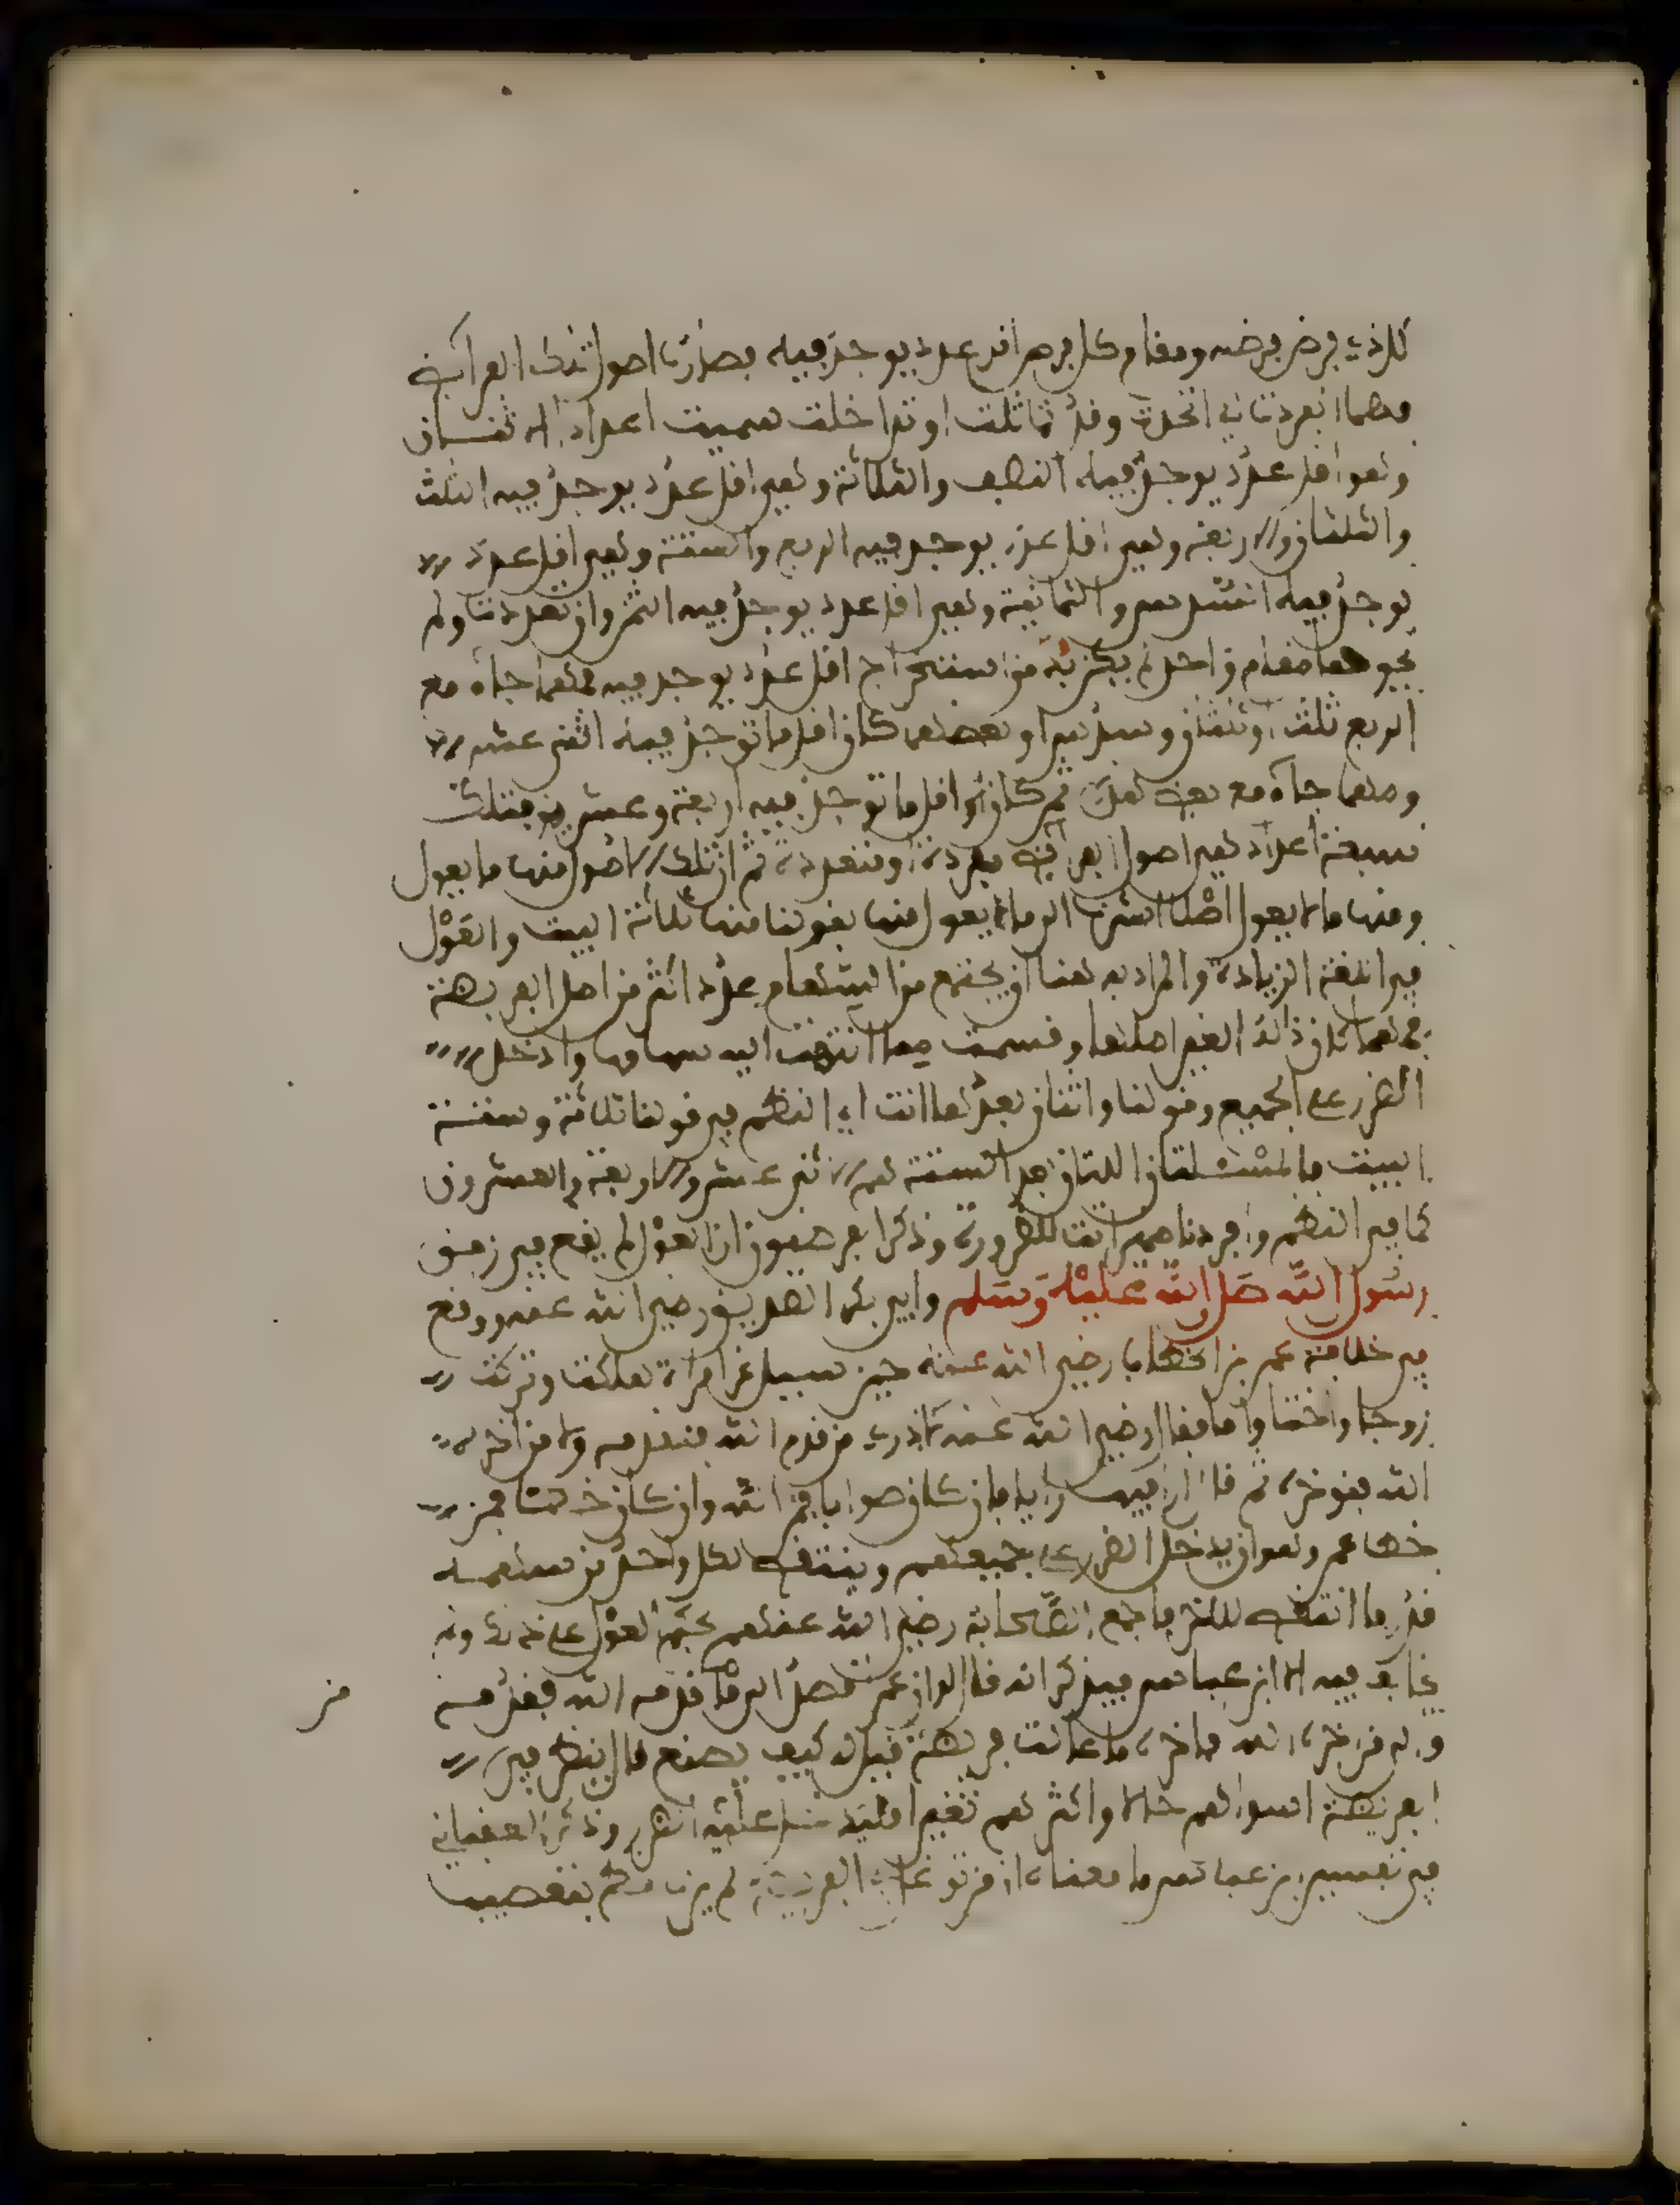 للذي فرض فرضه ومقام كل فرض اقل عدد يوجد فيه فصارت اصول تلك الفرائض
مهما انفردت او اتحدت وقد تماثلت او تداخلت خمسة اعداد الاثنان
وهو اقل عدد يوجد فيه النصف والثلاثة وهي اقل عدد يوجد فيه الثلث
والثلثان والاربعة وهي اقل عدد يوجد فيه الربع والستة وهي اقل عدد
يوجد فيه السدس والثمانية وهي اقل عدد يوجد فيه الثمن وان تعددت ولم
يجمعها مقام واحد لم يكن بد من استخراج اقل عدد يوجد فيه فمهما جاء مع
الربع ثلث او ثلثان وسدس او بعضها كان اقل ما توجد فيه اثنى عشر
ومهما جاء مع بعض هذه ثمن كان اقل ما توجد فيه اربعة وعشرين فتلك
سبعة اعداد هي اصول الفرائض مفردة او متعددة ثم ان تلك الاصول منها ما يعول
ومنها ما لا يعول اصلا اشرنا الى ما يعول منها بقولنا منها ثلاثة البيت والعَوْل
في اللغة الزيادة والمراد به هنا ان يجتمع من السهام عدد اكثر من اصل الفريضة
فمهما كان ذلك الغي اصلها وقسمت مما انتهت اليه سهامها وادخل
الضرر على الجميع وقولنا واثنان بعدها انت اي النظم في قولنا ثلاثة وستة
البيت فالمسئلتان اللتان بعد الستة هم الاثني عشر والاربعة والعشرون
كما في النظم وافردنا ضمير انت للضرورة وذكر الفرضيون ان العَوْل لم يقع في زمن
رسول الله صلى الله عليه وسلم وابي بكر الصديق رضي الله عنه ووقع
في خلافة عمر بن الخطاب رضي الله عنه حين سيل عن امراة هلكت وتركت
زوجا واختا واما فقال رضي الله عنه لا ادري من قدم الله فنقدمه ولا من اخره
الله فنوخره ثم قال رايت رايا فان كان صوابا فمن الله وان كان خطئا فمن
خطا عمر وهو ان يدخل الضرر على جميعهم وينتقص لكل واحد من سهمه
قدر ما انتقص للاخر فاجمع الصّحابة رضي الله عنهم بحكم العَوْل على ذلك ولم
يخالف فيه الا ابن عباس فيذكر انه قال لو ان عمر نظر الى من قدمه الله فقدمه
والى من اخره الله فاخره ما عالت فريضة فقيل له كيف يصنع قال ينظر في
الفريضة اسوا لهم حالا واكثرهم تغيرا فليدخل عليه الضرر وذكر العقباني
في تفسير ابن عباس ما معناه ان من توغل الفريضة لم يزل منهم بتعصيب
من